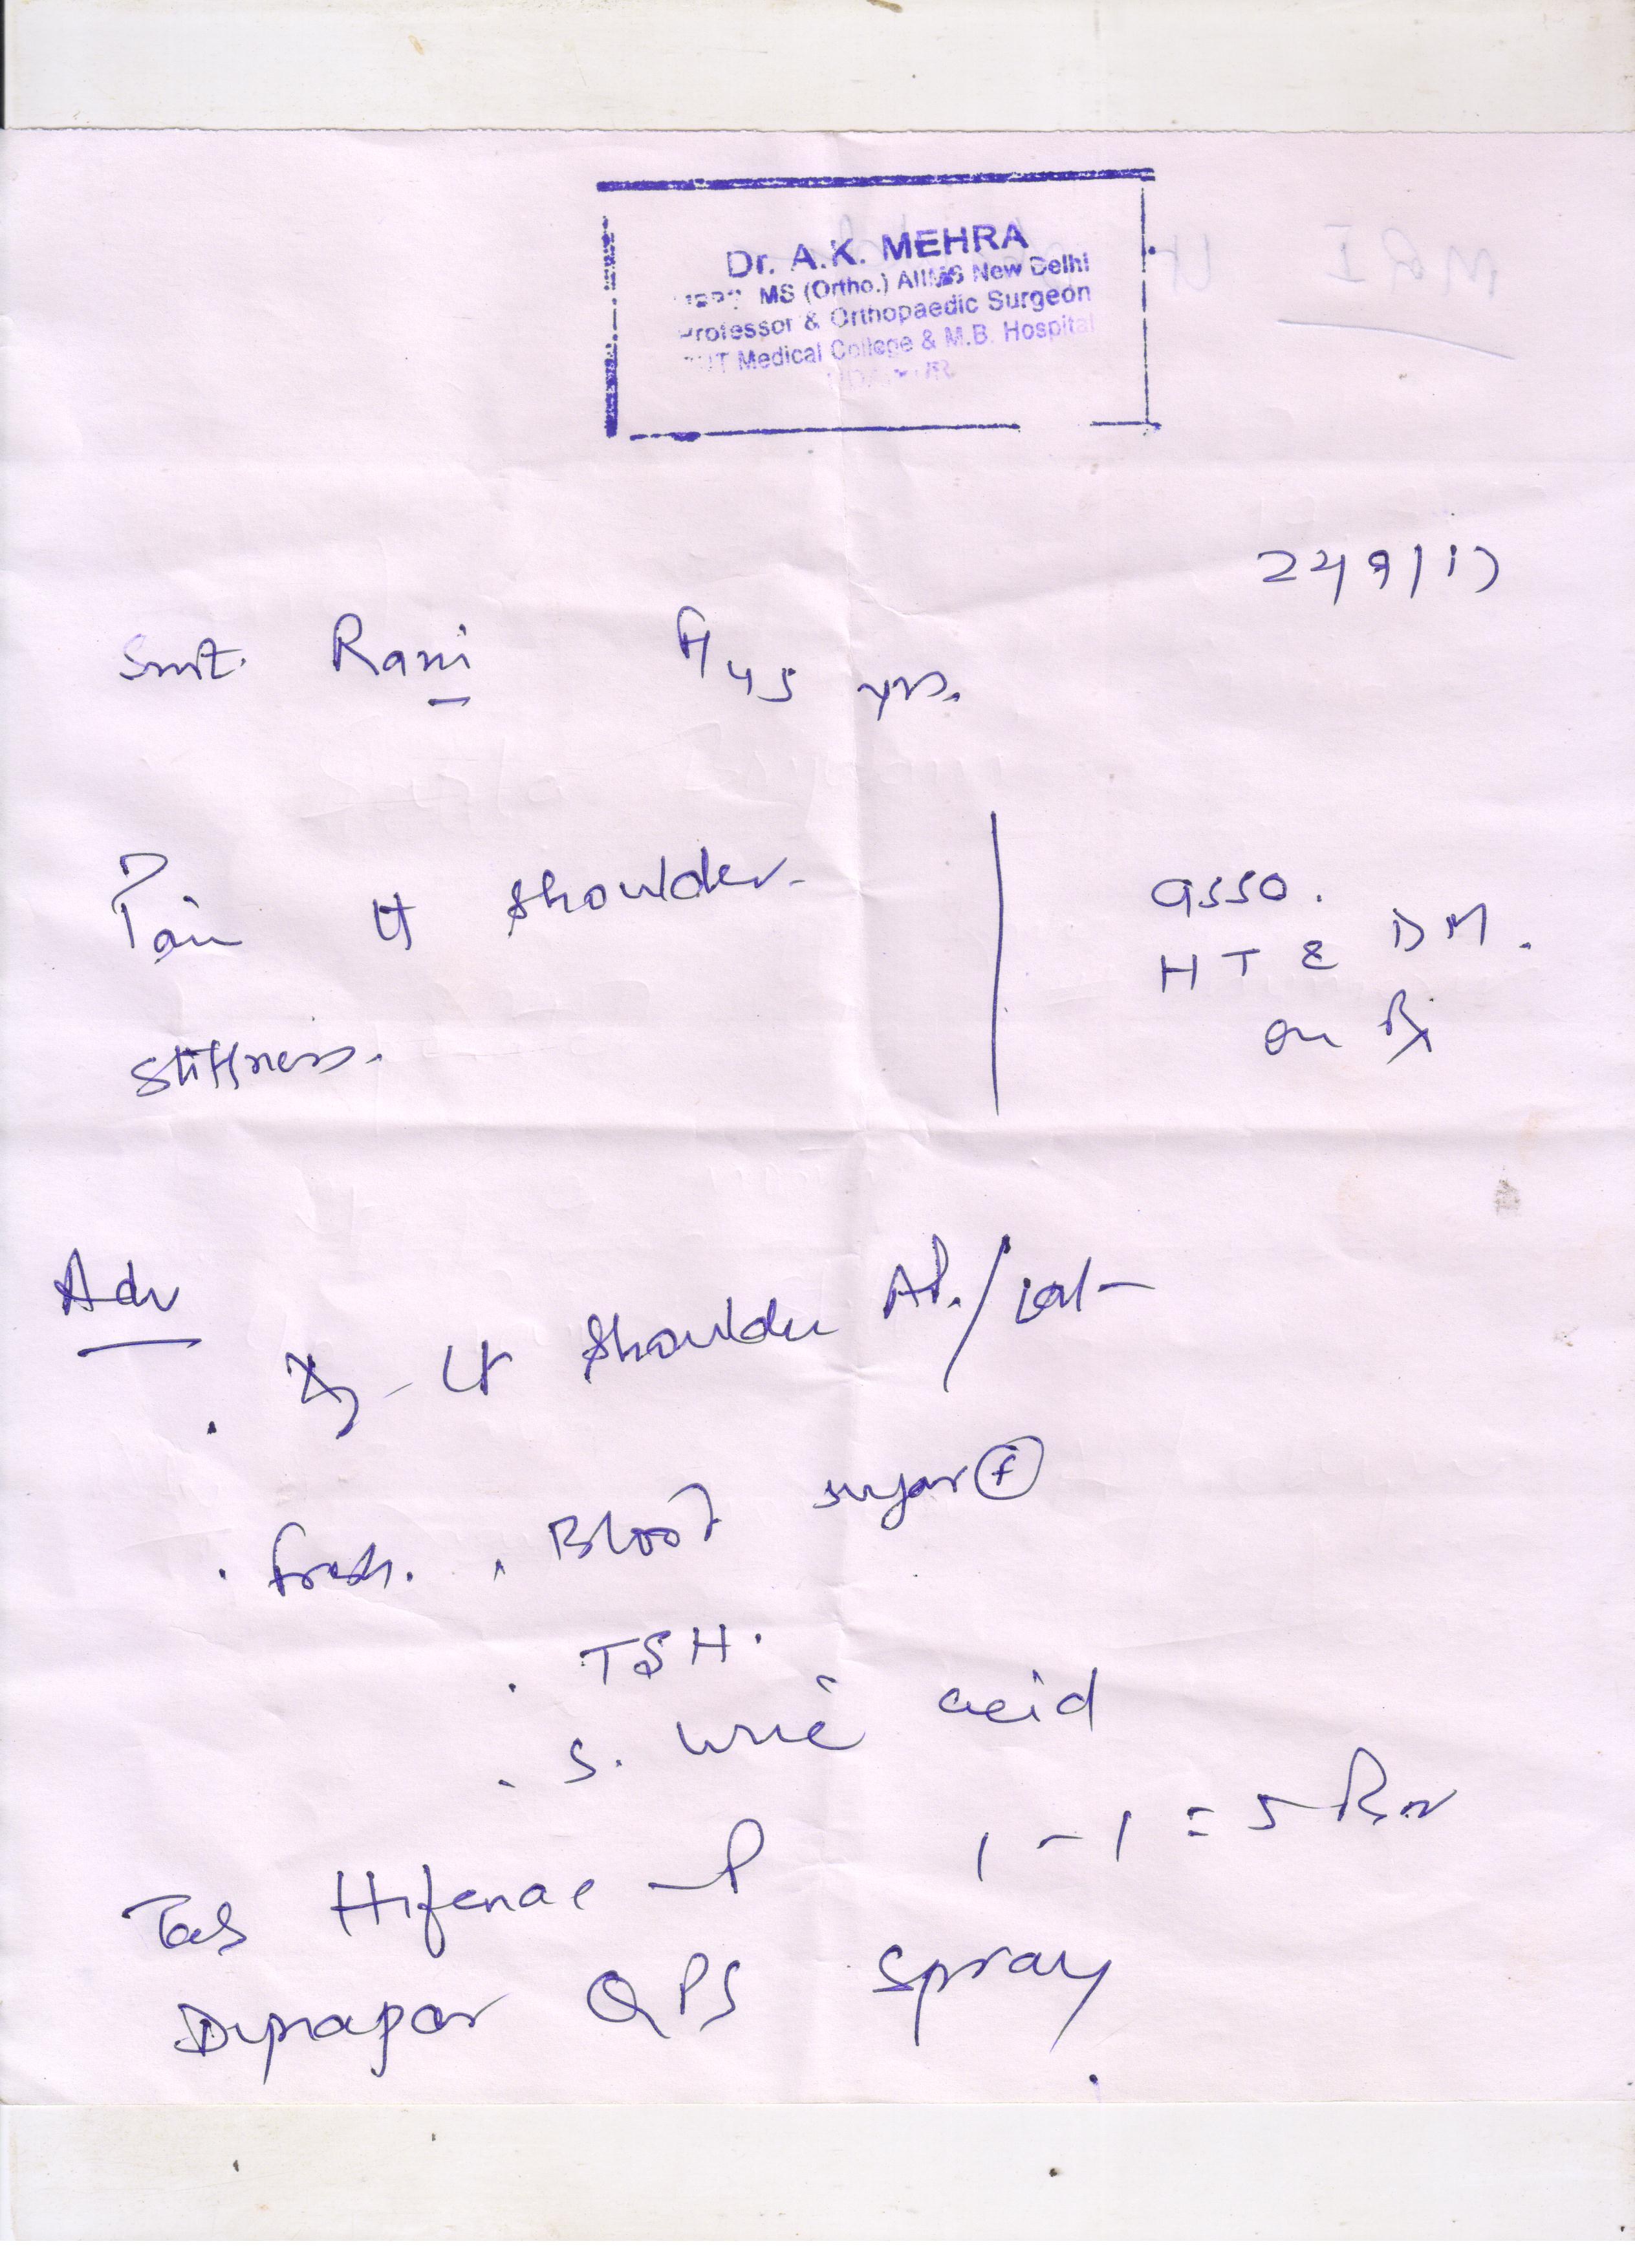 Dr. A.K. MEHRA
MS (Ortho.) AIIMS New Delhi
Professor & Orthopaedic Surgeon
Medical College & M.B. Hospital
Smt. Rani 45 yrs.
Pain Lt shoulder.
Stiffness.
asso.
HT & DM.
on Rx
Adv
. X- Lt shoulder AP./Lat
. fresh. . Blood sugar (f)
. TSH.
. S. Uric acid
Tab Hifenac -P 1 - 1 = 5
Dynapar QPS spray.
MRI Lt